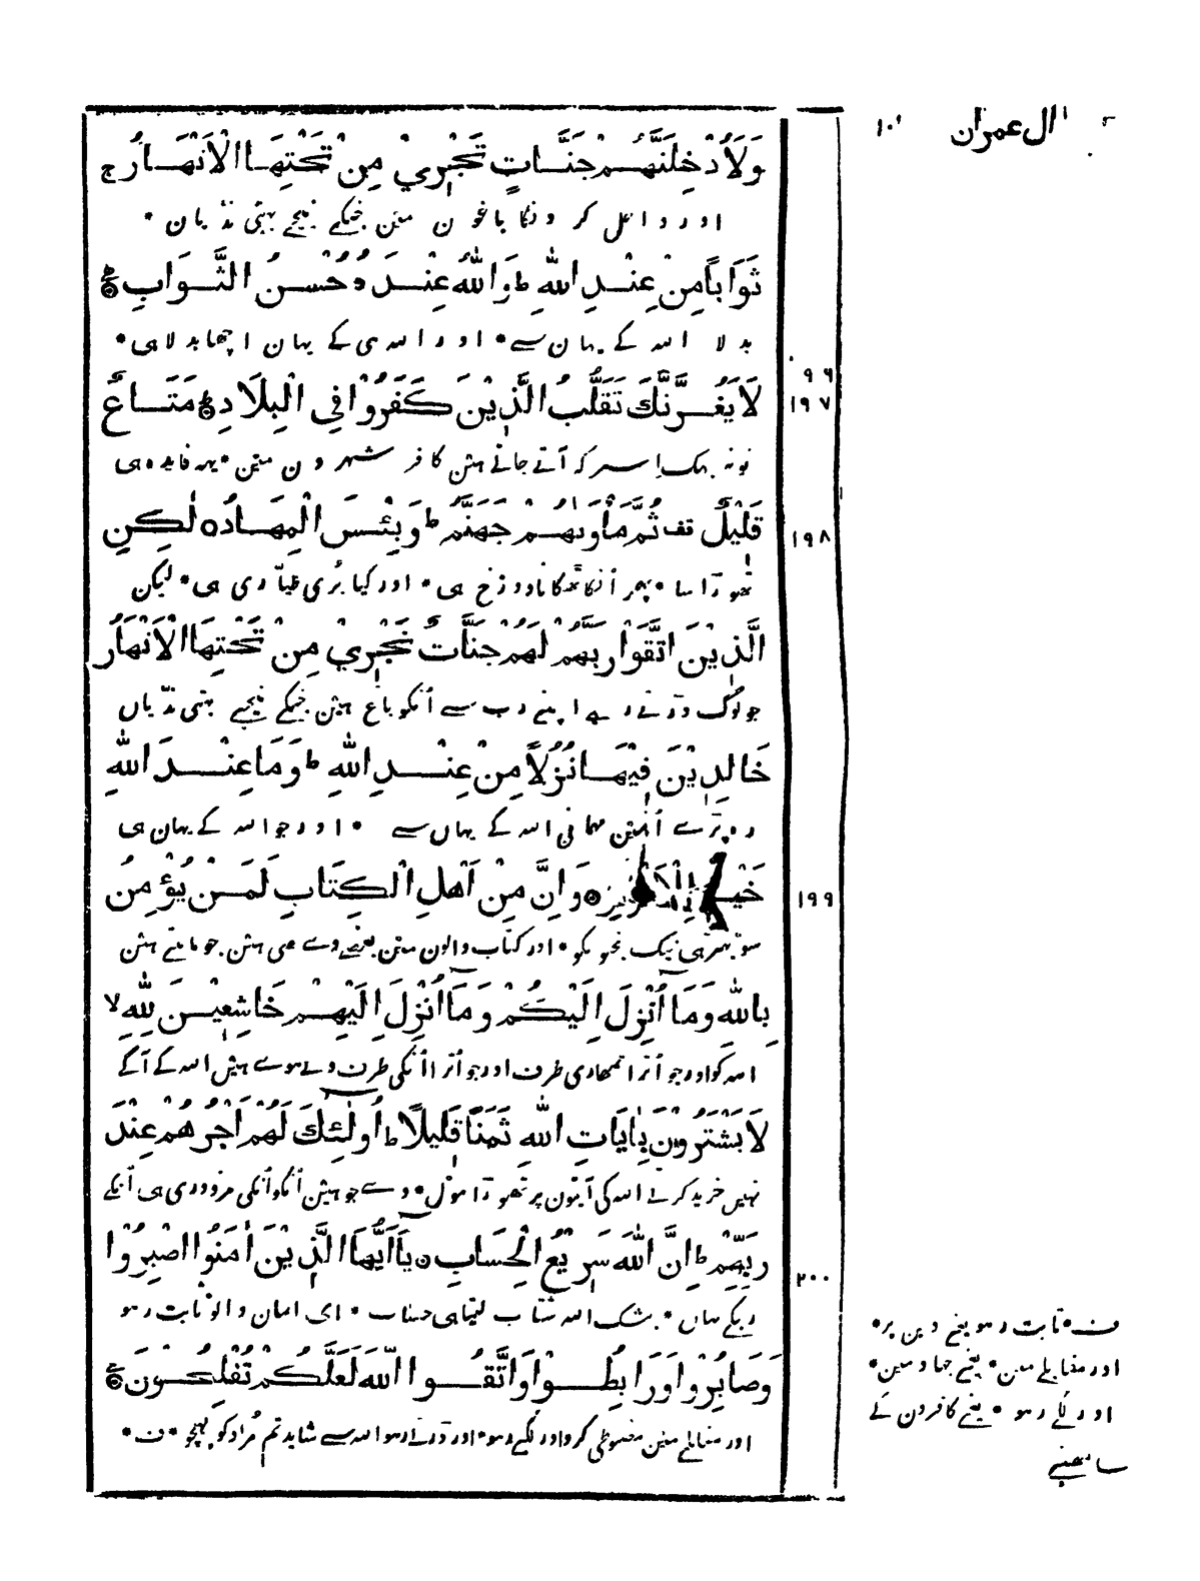 ٣ اٰل عمران ١٠١
وَلَاُدْخِلَنَّهُمْ جَنَّاتٍ تَجْرِيْ مِنْ تَحْتِهَا الْاَنْهَارُ ج
اور داخل کرونگا باغون مین جنکے نیچے بہتی ندّیان •
ثَوَابًا مِنْ عِنْدِ اللّٰهِ ط وَاللّٰهُ عِنْدَهُ حُسْنُ الثَّوَابِ
بدلا الله کے یہان سے • اور الله ہی کے یہان اچھا بدلا ہی •
١٩٦
لَا يَغُرَّنَّكَ تَقَلُّبُ الَّذِيْنَ كَفَرُوْا فِي الْبِلَادِ مَتَاعٌ ١٩٧
تو نہ بہک اِسپر کہ آتے جاتے ہین کافر شہرون مین • یہہ فایدہ ہی
قَلِيْلٌ قف ثُمَّ مَأْوٰىهُمْ جَهَنَّمُ ط وَبِئْسَ الْمِهَادُ ٥ لٰكِنِ ١٩٨
تھوڑا سا • پھر اُنکا ٹھکانا دوزخ ہی • اور کیا بُری طیّاری ہی • لیکن
الَّذِيْنَ اتَّقَوْا رَبَّهُمْ لَهُمْ جَنَّاتٌ تَجْرِيْ مِنْ تَحْتِهَا الْاَنْهَارُ
جو لوگ ڈرتے رہے اپنے رب سے اُنکو باغ ہین جنکے نیچے بہتی ندّیاں
خَالِدِيْنَ فِيْهَا نُزُلًا مِنْ عِنْدِ اللّٰهِ ط وَمَا عِنْدَ اللّٰهِ
رہ پڑے اُنمین مہمانی الله کے یہاں سے • اور جو الله کے یہان ہی
خَيْرٌ لِلْاَبْرَارِ ٥ وَاِنَّ مِنْ اَهْلِ الْكِتَابِ لَمَنْ يُؤْمِنُ ١٩٩
سو بہتر ہی نیک بختو نکو • اور کتاب والون مین بعضے وے بھی ہین جو مانتے ہین
بِاللّٰهِ وَمَا اُنْزِلَ اِلَيْكُمْ وَمَا اُنْزِلَ اِلَيْهِمْ خَاشِعِيْنَ لِلّٰهِ لا
الله کو اور جو اُترا تمھاری طرف اور جو اُترا اُنکی طرف دبے ہوے ہین الله کے آگے
لَا يَشْتَرُوْنَ بِاٰيَاتِ اللّٰهِ ثَمَنًا قَلِيلًا ط اُولٰئِكَ لَهُمْ اَجْرُهُمْ عِنْدَ
نہیں خرید کرتے الله کی آیتون پر تھوڑا مول • وے جو ہین اُنکو اُنکی مزدوری ہی اُنکے
رَبِّهِمْ ط اِنَّ اللّٰهَ سَرِيْعُ الْحِسَابِ ٥ يَا اَيُّهَا الَّذِيْنَ اٰمَنُوا اصْبِرُوْا ٢٠٠
ربکے یہاں • بیشک الله شتاب لیتا ہی حساب • ای ایمان والو ثابت رہو
وَصَابِرُوْا وَرَابِطُوْا وَاتَّقُوا اللّٰهَ لَعَلَّكُمْ تُفْلِحُوْنَ
اور مقابلے مین مضبوطی کرو اور لگے رہو • اور ڈرتے رہو الله سے شاید تم مُراد کو پہنچو • ف •
ف • ثابت رہو یعنے دین پر •
اور مقابلے مین • یعنے جہاد مین •
اور لگے رہو • یعنے کافرون کے
سامھنے